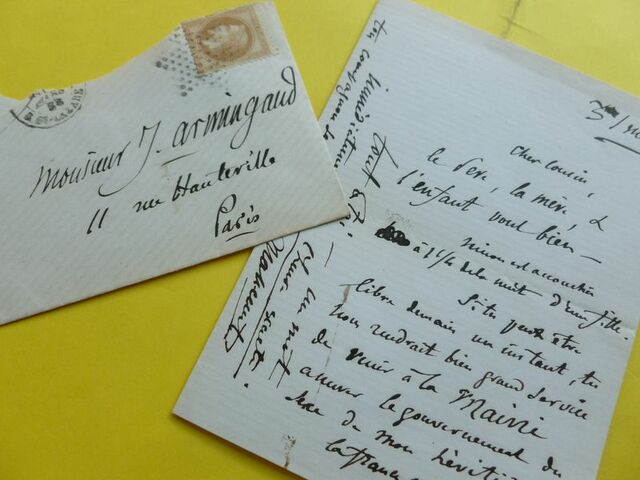 Monsieur J. Armingaud
11 rue Hauteville
Paris
Cher Cousin,
le Père, la mère, &
l'enfant vont bien –
Ninon est accouchée
à 1h 1/4 de la nuit d'une fille.
Si tu peux être
libre demain un instant, tu
nous rendrait bien grand service
de venir à la Mairie
assurer le gouvernement du
sexe de mon héritière
la france
tout à toi